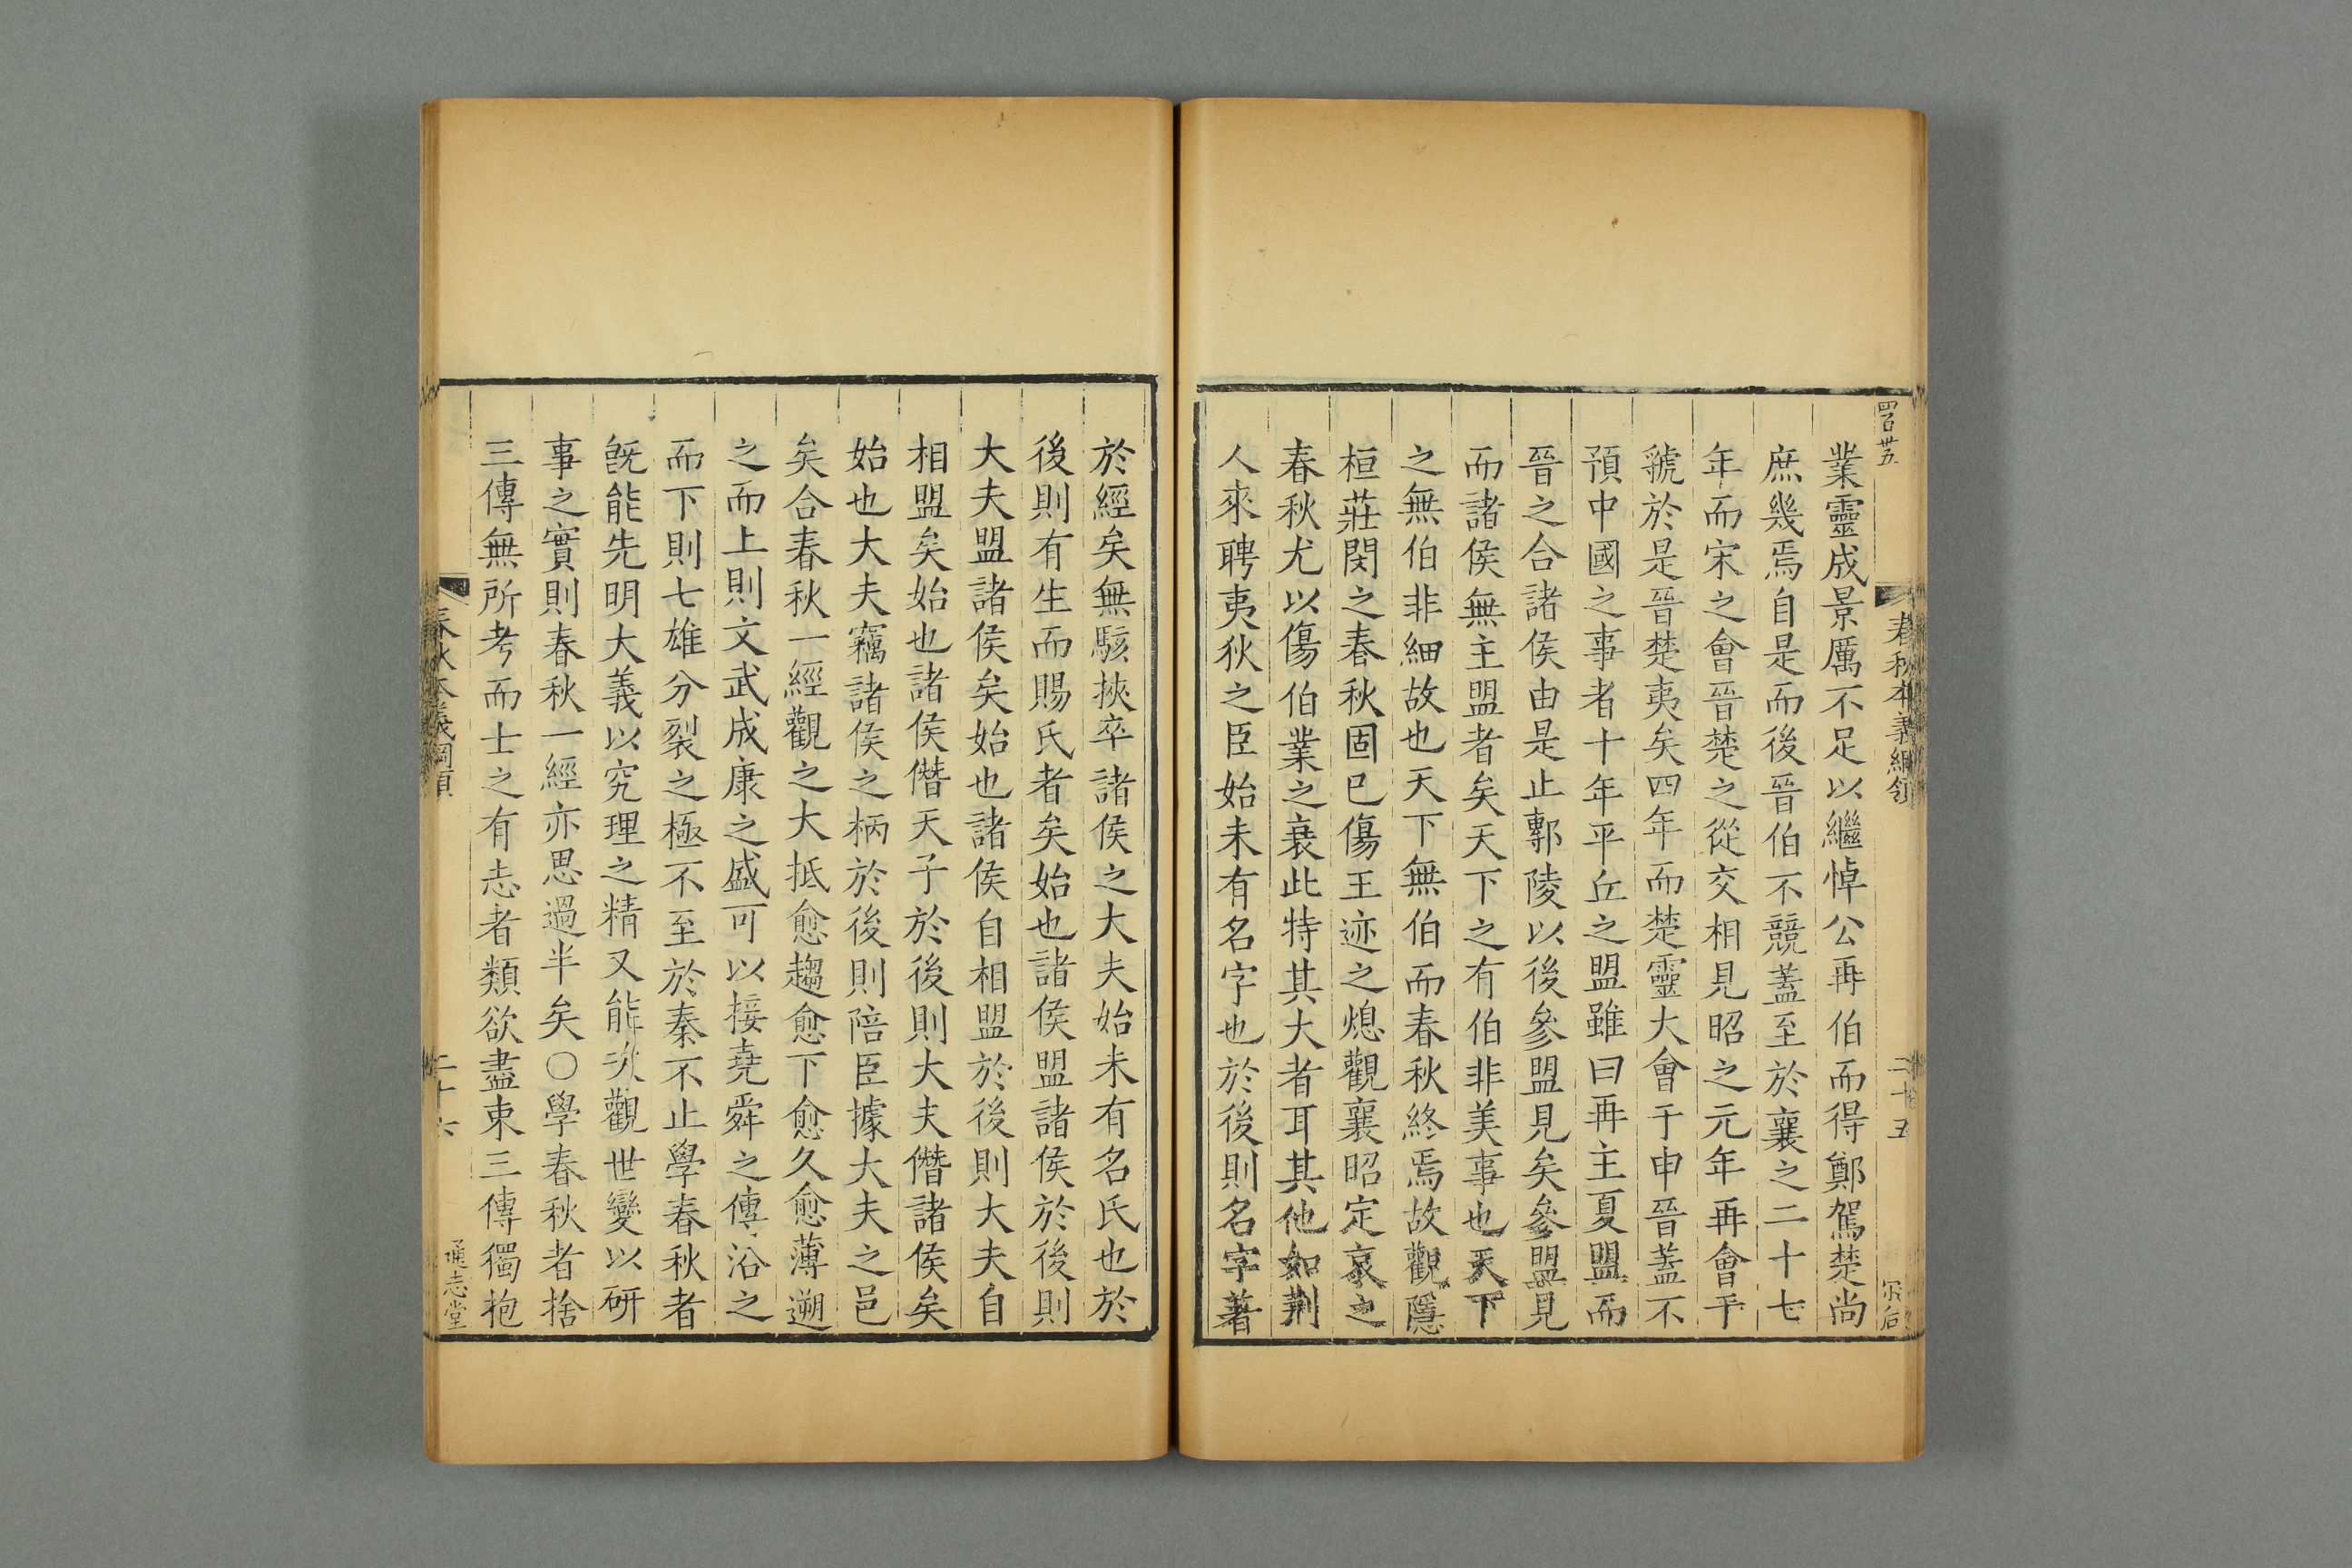 四百廿五
春秋本義綱領
二十五
業靈成景厲不足以繼悼公再伯而得鄭駕楚尚
庶幾焉自是而後晉伯不競蓋至於襄之二十七
年而宋之會晉楚之從交相見昭之元年再會于
虢於是晉楚夷矣四年而楚靈大會于申晉蓋不
預中國之事者十年平丘之盟雖曰再主夏盟而
晉之合諸侯由是止鄟陵以後參盟見矣參盟見
而諸侯無主盟者矣天下之有伯非美事也天下
之無伯非細故也天下無伯而春秋終焉故觀隱
桓莊閔之春秋固已傷王迹之熄觀襄昭定哀之
春秋尤以傷伯業之衰此特其大者耳其他如荆
人來聘夷狄之臣始未有名字也於後則名字著
於經矣無駭挾卒諸侯之大夫始未有名氏也於
後則有生而賜氏者矣始也諸侯盟諸侯於後則
大夫盟諸侯矣始也諸侯自相盟於後則大夫自
相盟矣始也諸侯僭天子於後則大夫僭諸侯矣
始也大夫竊諸侯之柄於後則陪臣據大夫之邑
矣合春秋一經觀之大抵愈趨愈下愈久愈薄遡
之而上則文武成康之盛可以接堯舜之傳沿之
而下則七雄分裂之極不至於秦不止學春秋者
旣能先明大義以究理之精又能次觀世變以研
事之實則春秋一經亦思過半矣○學春秋者捨
三傳無所考而士之有志者類欲盡束三傳獨抱
春秋本義綱領
二十六
通志堂